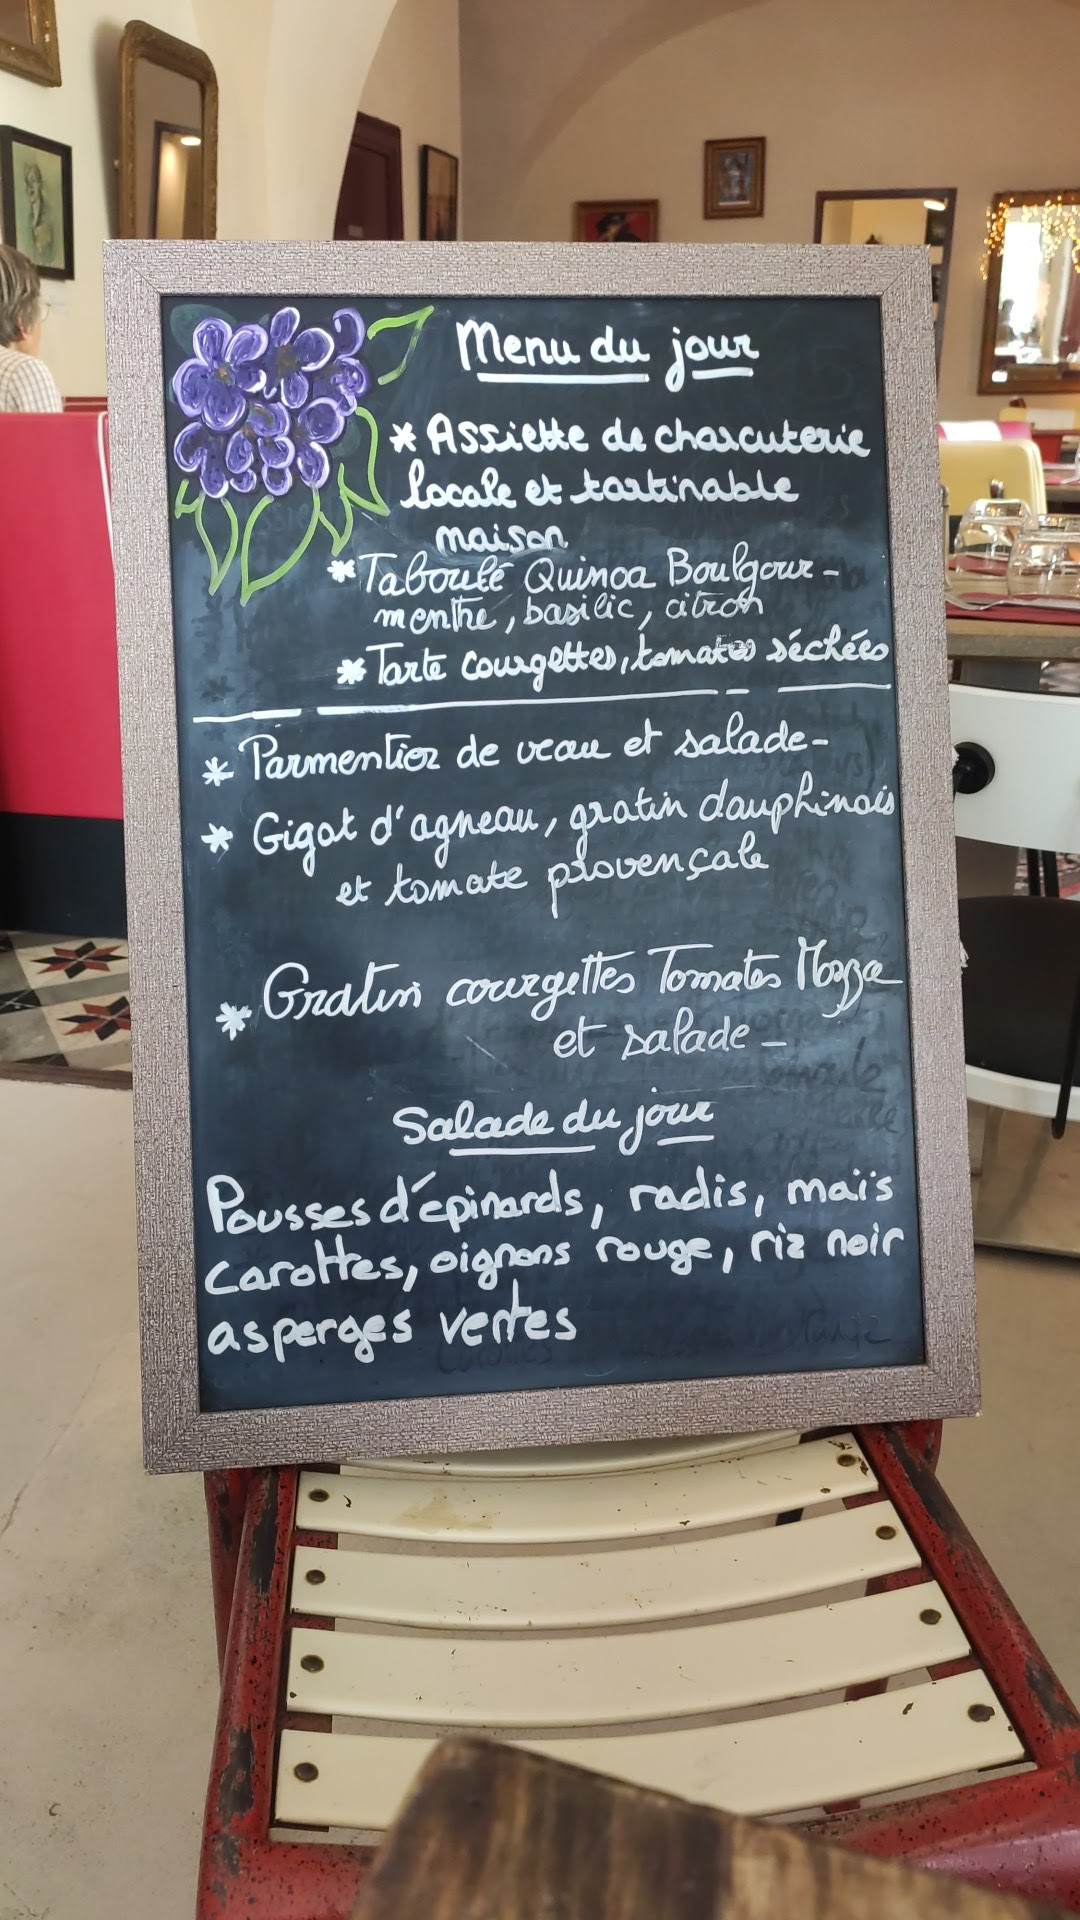 Menu du jour
* Assiette de charcuterie
locale et tartinable
maison
* Taboulé Quinoa Boulgour -
menthe, basilic, citron
* Tarte courgettes, tomates séchées
* Parmentier de veau et salade -
* Gigot d'agneau, gratin dauphinois
et tomate provençale
* Gratin courgettes Tomates Mozza
et salade -
Salade du jour
Pousses d'épinards, radis, maïs
carottes, oignons rouge, riz noir
asperges vertes